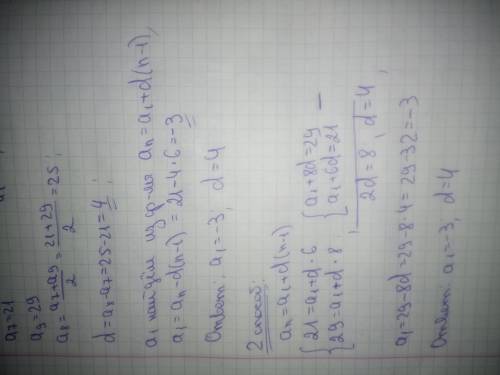 a₇=21
a₉=29
a₈ = (a₇+a₉)/2 = (21+29)/2 = 25;
d=a₈-a₇=25-21=4;
a₁ найдём из ф-лы aₙ=a₁+d(n-1),
a₁=aₙ-d(n-1) = 21-4·6=-3
Ответ: a₁=-3, d=4
2 способ:
aₙ=a₁+d(n-1)
{21=a₁+d·6 {a₁+8d=29 –
{29=a₁+d·8, {a₁+6d=21
2d=8, d=4,
a₁=29-8d=29-8·4=29-32=-3
Ответ: a₁=-3; d=4